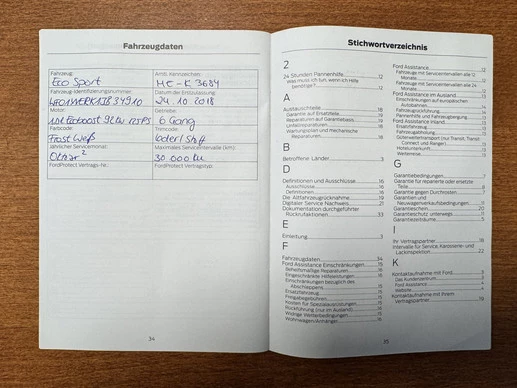 Fahrzeugdaten
Fahrzeug:
Eco Sport
Amtl. Kennzeichen:
ME-K 3684
Fahrzeug-Identifizierungsnummer:
Datum der Erstzulassung:
24.10.2018
Motor:
6 Gang
Farbcode:
Frost Weiß
Trimcode:
Jährlicher Servicemonat:
Maximales Serviceintervalle (km):
30 000 km
FordProtect Vertrags-Nr.:
FordProtect Vertragstyp:
34
Stichwortverzeichnis
2
24 Stunden Pannenhilfe 12
Was muss ich tun, wenn ich Hilfe
benötige? 12
A
Austauschteile 18
Garantie auf Ersatzteile 19
Reparatur auf Garantiebasis 19
Unfallreparaturen 18
Wartungsplan und mechanische
Reparaturen 18
B
Betroffene Länder 3
D
Definitionen und Ausschlüsse 16
Ausschlüsse 16
Definitionen 16
Die Altfahrzeugrücknahme 19
Digitaler Service Nachweis 21
Dokumentation durchgeführter
Rückrufaktionen 33
E
Einleitung 3
F
Fahrzeugdaten 34
Ford Assistance Einschränkungen 15
Behelfsmäßige Reparaturen 16
Eingeschränkte Hilfeleistungen 16
Einschränkungen bezüglich des
Abschleppens 15
Ersatzfahrzeug 15
Freigabegebühren 15
Kosten für Spezialausrüstungen 15
Rückführung (nur im Ausland) 15
Widrige Wetterbedingungen 15
Wohnwagen/Anhänger 16
Ford Assistance 12
Fahrzeuge mit Serviceintervallen alle 12
Monate 12
Fahrzeuge mit Serviceintervallen alle 24
Monate 12
Ford Assistance im Ausland 13
Einschränkungen auf europäischen
Autobahnen 14
Fahrzeugrückführung 14
Pannenhilfe und Fahrzeugbergung 13
Ford Assistance Inland 13
Ersatzfahrzeug 13
Fahrzeugabholung 13
Gütertransport (nur Transit, Transit
Connect und Ranger) 13
Hotelunterkunft 13
Weiterreise 13
G
Garantiebedingungen 7
Garantie für reparierte oder ersetzte
Teile 8
Garantie gegen Durchrosten 7
Garantien und
Neuwagenverkaufsbedingungen 7
Garantieschein 20
Garantieschutz unterwegs 11
Garantiezeiträume 5
I
Ihr Vertragspartner 18
Intervalle für Service, Karosserie- und
Lackinspektion 22
K
Kontaktaufnahme mit Ford
Das Kundenzentrum
Ford Assistance
Website
Kontaktaufnahme mit Ihrem
Vertragspartner 18
35